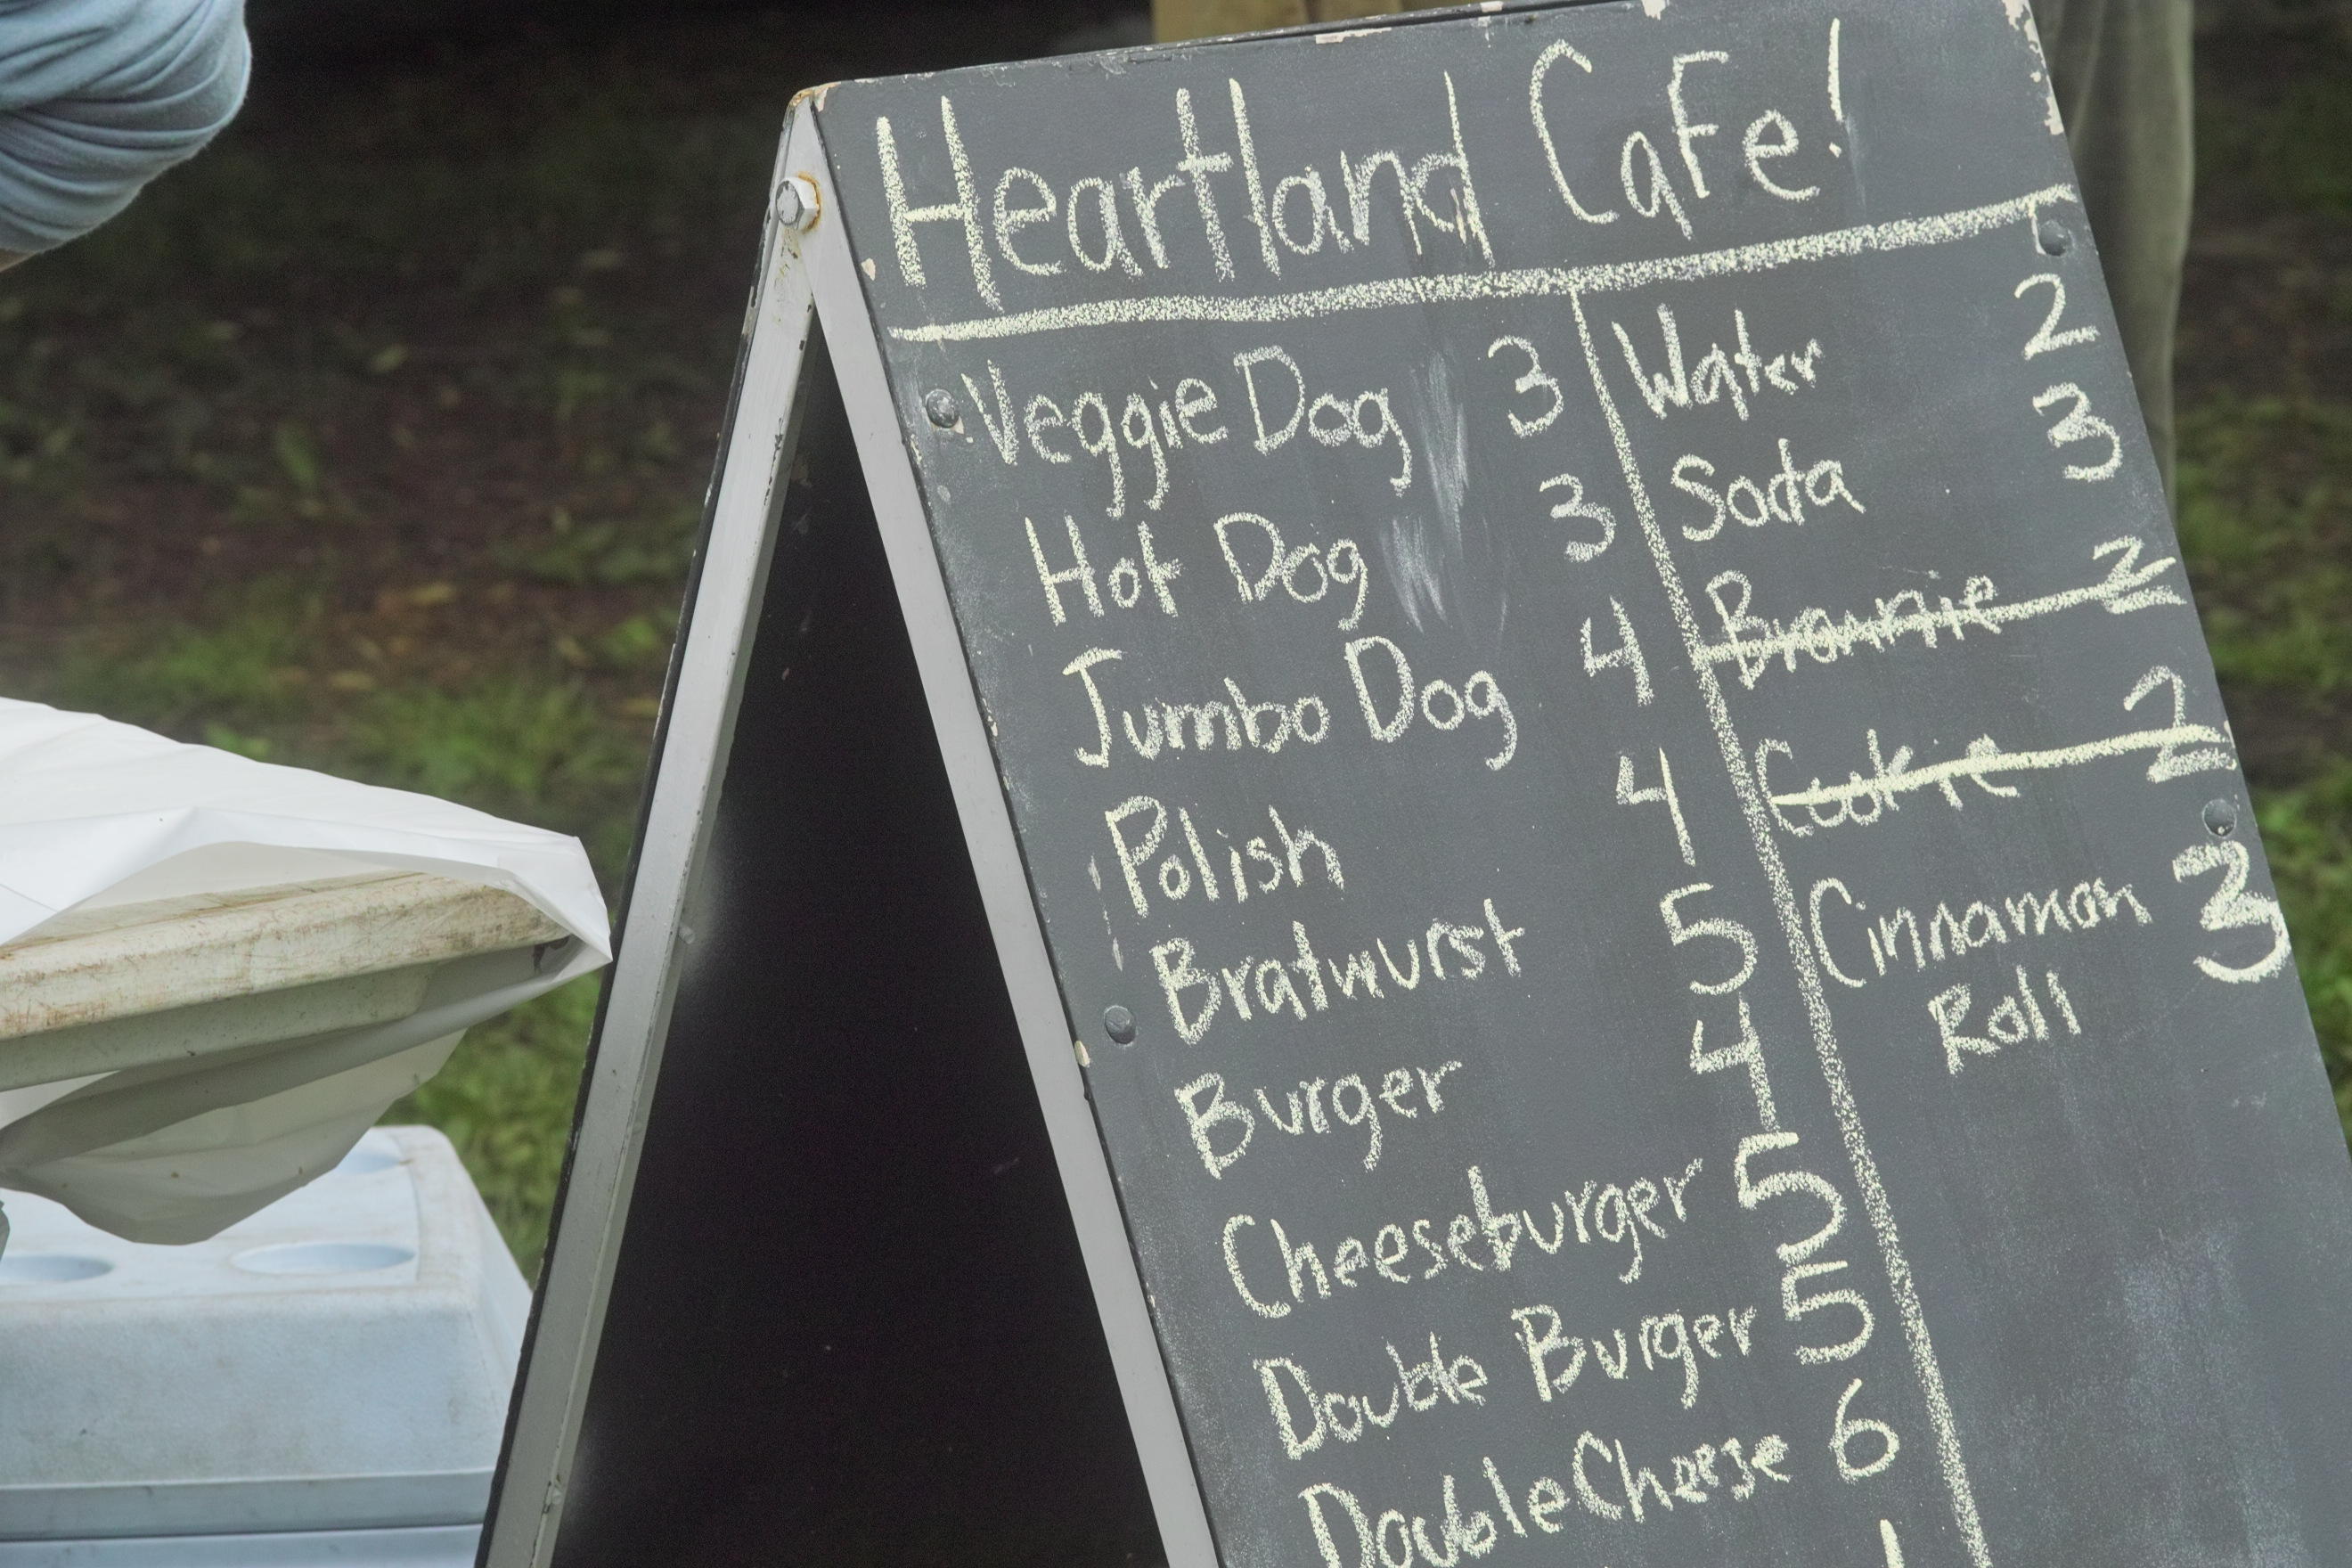 Heartland Cafe!
Veggie Dog 3
Hot Dog 3
Jumbo Dog 4
Polish 4
Bratwurst 5
Burger 4
Cheeseburger 5
Double Burger 5
Double Cheese 6
Water 2
Soda 3
Brownie 2
Cookie 2
Cinnamon 3
Roll